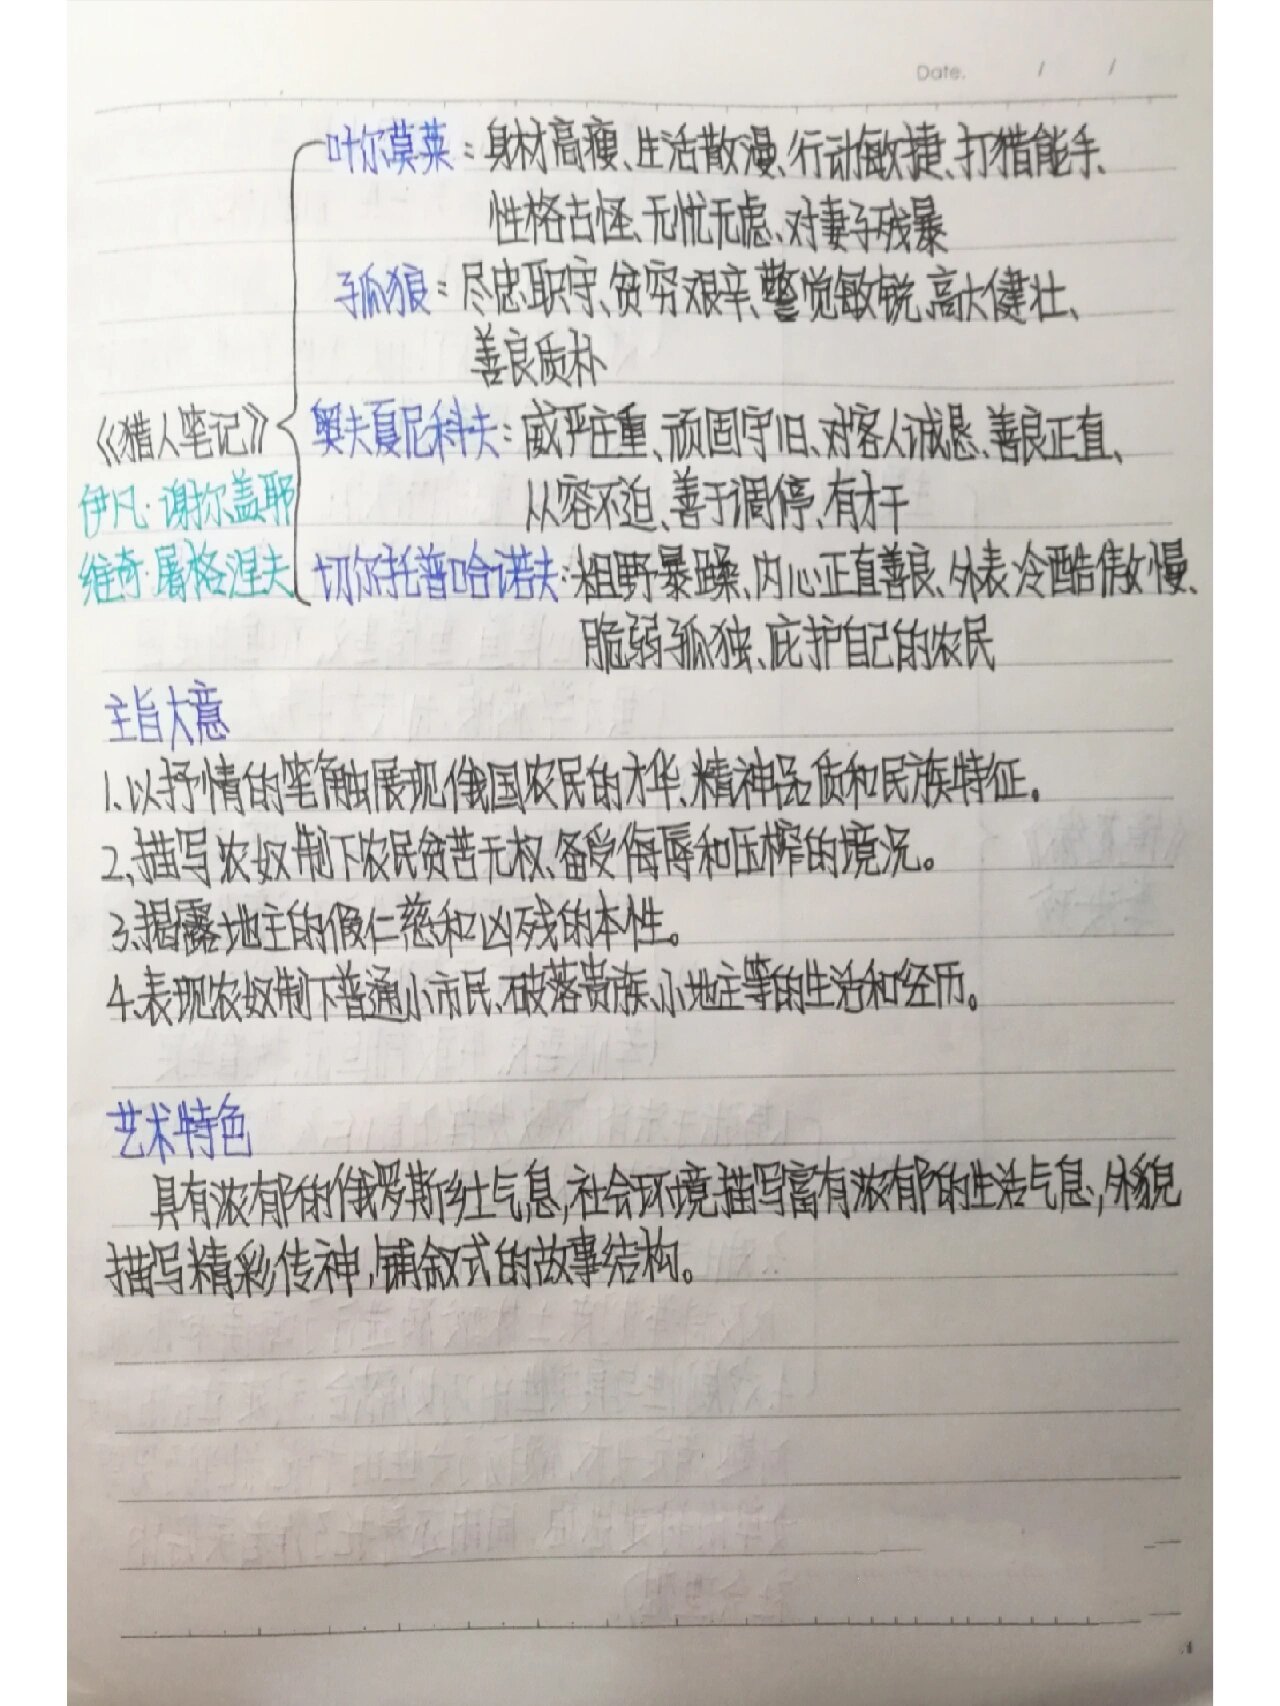 Date. / /
叶尔莫莱：身材高瘦、生活散漫、行动敏捷、打猎能手、
性格古怪、无忧无虑、对妻子残暴
孤狼：尽忠职守、贫穷艰辛、警觉敏锐、高大健壮、
善良质朴
《猎人笔记》
奥夫夏尼科夫：威严庄重、顽固守旧、对客人诚恳、善良正直、
伊凡·谢尔盖耶
从容不迫、善于调停、有才干
维奇·屠格涅夫
切尔托普哈诺夫：粗野暴躁、内心正直善良、外表冷酷傲慢、
脆弱孤独、庇护自己的农民
主旨大意
1、以抒情的笔触展现俄国农民的才华、精神品质和民族特征。
2、描写农奴制下农民贫苦无权、备受侮辱和压榨的境况。
3、揭露地主的假仁慈和凶残的本性。
4、表现农奴制下普通小市民、破落贵族、小地主等的生活和经历。
艺术特色
具有浓郁的俄罗斯乡土气息，社会环境描写富有浓郁的生活气息，外貌
描写精彩传神，铺叙式的故事结构。